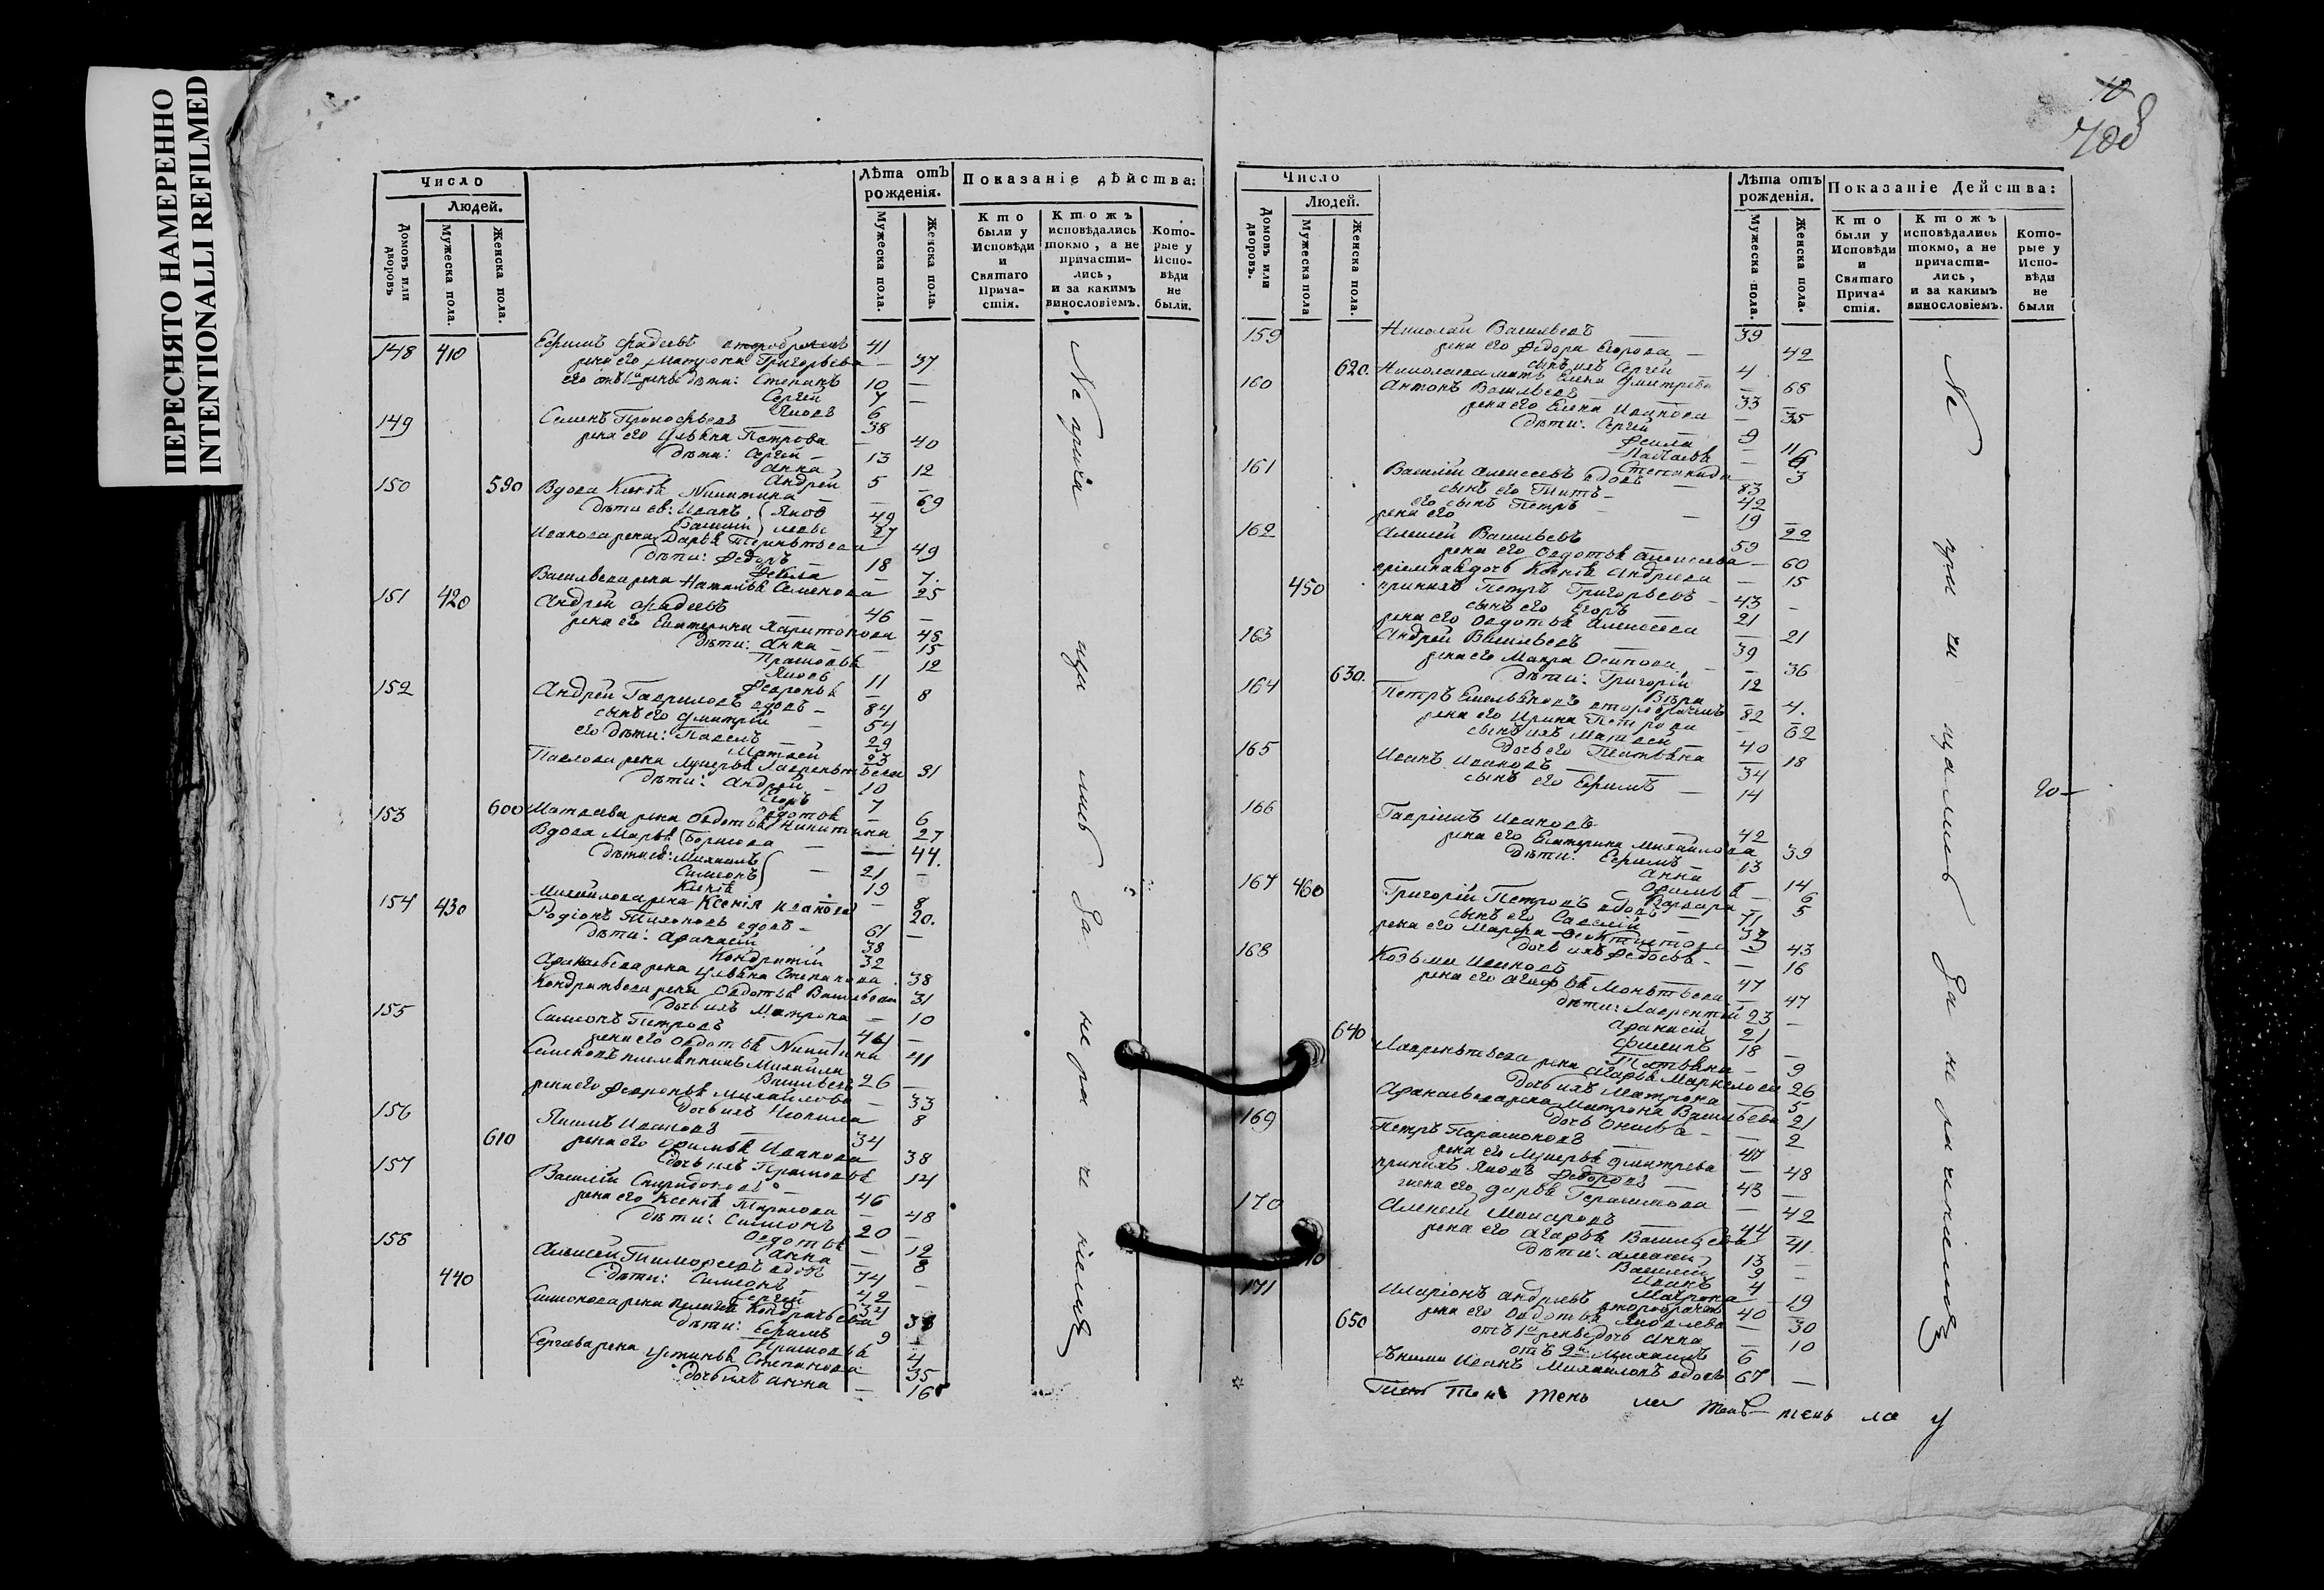 ПЕРЕСНЯТО НАМЕРЕННО
INTENTIONALLI REFILMED
Число
Людей.
Домовъ или дворовъ
Мужеска пола.
Женска пола.
Лѣта отъ рожденія.
Мужеска пола.
Женска пола.
Показаніе дѣйства:
Кто были у Исповѣди и Святаго Причастія.
Ктожъ исповѣдались токмо, а не причастились, и за какимъ винословіемъ.
Которые у Исповѣди не были.
148 410 Ефимъ Фадеевъ второбрачен 41
жена его Матрона Григорьева — 37
его отъ 1й жены дѣти: Степанъ 10 —
Сергей 7 —
Яковъ 6
149 Семенъ Прокофьевъ 38
жена его Ульяна Петрова — 40
дѣти: Сергей 13
Анна 12
Андрей 5 —
150 590 Вдова Ксенія Никитина — 69
дѣти ея: Иванъ 49
Василій 27
Иванова жена Дарья Терентьева 49
дѣти: Федоръ 18
Фекла — 7.
Васильева жена Наталья Семенова 25
151 420 Андрей Фадеевъ 46 —
жена его Екатерина Харитонова 48
дѣти: Анна — 15
Прасковья 12
Яковъ 11
Февронья — 8
152 Андрей Гавриловъ вдовъ — 84
сынъ его Дмитрій — 54
его дѣти: Павелъ — 29
Матвей 23
Павлова жена Лукерья Лаврентьева 31
дѣти: Андрей — 10
Егоръ 7
Авдотья — 6
600 Матвеева жена Авдотья Никитина 27
153 Вдова Марья Борисова — 44.
дѣти ея: Михаилъ 21 —
Симеонъ 19
Ксенія — 8
Михайлова жена Ксенія Иванова 20.
154 430 Родіонъ Тихоновъ вдовъ — 61 —
дѣти: Афанасій 38
Кондратій 32
Афанасьева жена Ульяна Степанова 38
Кондратьева жена Авдотья Васильева 31
дочь ихъ Матрона — 10
155 Симеонъ Петровъ 41 —
жена его Авдотья Никитина 41
Семеновъ племянникъ Михайла
Васильевъ 26 —
жена его Февронья Михайлова — 33
дочь ихъ 8
156 Якимъ Ивановъ 34
610 жена его Афимья Иванова 38
дочь ихъ Прасковья 14
157 Василій Спиридоновъ — 46
жена его Ксенія Тарасова — 48
дѣти: Симеонъ 20 —
Авдотья — 12
Анна — 8
158 Алексей Тимофеевъ вдовъ 74 —
440 дѣти: Симеонъ 42
Сергей 34
Симеонова жена Пелагея Кондратьева 38
дѣти: Ефимъ 9
Прасковья 4
Сергеева жена Устинья Степанова 35
дочь ихъ Анна — 16
Не прича щи лись за нера че ніемъ
10
708
Число
Людей.
Домовъ или дворовъ.
Мужеска пола
Женска пола.
Лѣта отъ рожденія.
Мужеска пола.
Женска пола.
Показаніе Действа:
Кто были у Исповѣди и Святаго Причастія.
Ктожъ исповѣдались токмо, а не причастились, и за какимъ винословіемъ.
Которые у Исповѣди не были
159 Николай Васильевъ 39
жена его Федора Егорова — 42
сынъ ихъ Сергей 4
620. Николаева мать Елена Дмитрева — 68
160 Антонъ Васильевъ 33 —
жена его Елена Иванова — 35
дѣти: Сергей 9
Фекла — 11
Наталья — 6
Степанида 3
161 Василій Алексеевъ вдовъ — 83
сынъ его Титъ — 42
его сынъ Петръ — 19 —
жена его — 22
162 Алексей Васильевъ 59
жена его Авдотья Алексеева — 60
дочь Ксенія Андреева — 15
450 Петръ Григорьевъ — 43 —
сынъ его Егоръ 21
жена его Авдотья Алексеева — 21
163 Андрей Васильевъ 39
жена его Мавра Осипова — 36
630. дѣти: Григорій 12
Вѣра — 4.
164 Петръ Емельяновъ второбрачен 82 —
жена его Ирина Петрова — 62
сынъ ихъ Матвей 40
дочь его Татьяна — 18
165 Иванъ Ивановъ 34
сынъ его Ефимъ — 14
166 Гавріилъ Ивановъ 42
жена его Екатерина Михайлова 39
дѣти: Ефимъ 13
Анна — 14
Афимья — 6
Варвара — 5
167 460 Григорій Петровъ вдовъ — 71
сынъ его Савелій 37
жена его Марфа Феоктистова — 43
дочь ихъ Федосья — 16
168 Козьма Ивановъ 47
жена его Агафья Монетьева — 47
дѣти: Лаврентій 23
Афанасій 21 —
640 Филипъ 18 —
Татьяна — 9
Лаврентьева жена Марья Маркелова 26
дочь ихъ Матрона 5
Афанасьева жена Матрона Васильева 21
дочь — 2
169 Петръ Парамоновъ 47 —
жена его Лукерья Дмитрева — 48
Яковъ Федоровъ 43 —
жена его Дарья Герасимова — 42
170 Алексей Макаровъ 44 —
жена его Агафья Васильева 41.
дѣти: Алексей 13
Василей 9 —
Иванъ 4
Матрона — 19
171 Иларіонъ Андреевъ второбрачен 40 —
жена его Авдотья Яковлева — 30
650 отъ 1й жены дочь Анна — 10
отъ 2й Михаилъ 6
съ ними Иванъ Михайловъ вдовъ 67 —
Не при ча щались за не ра че ніемъ
20 —
тень тень